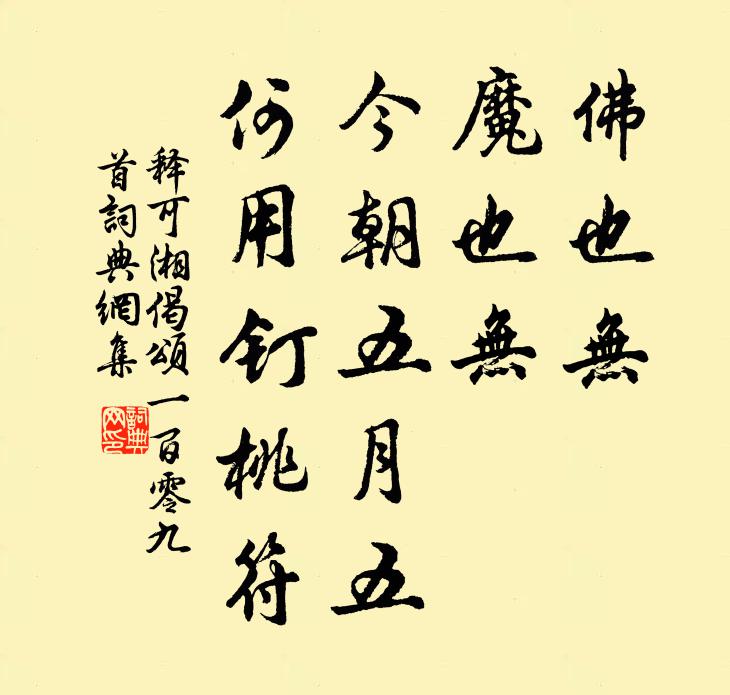 佛也無
魔也無
今朝五月五
何用釘桃符
释可湘偈頌一百零九
首詞典網集
詞典
网印